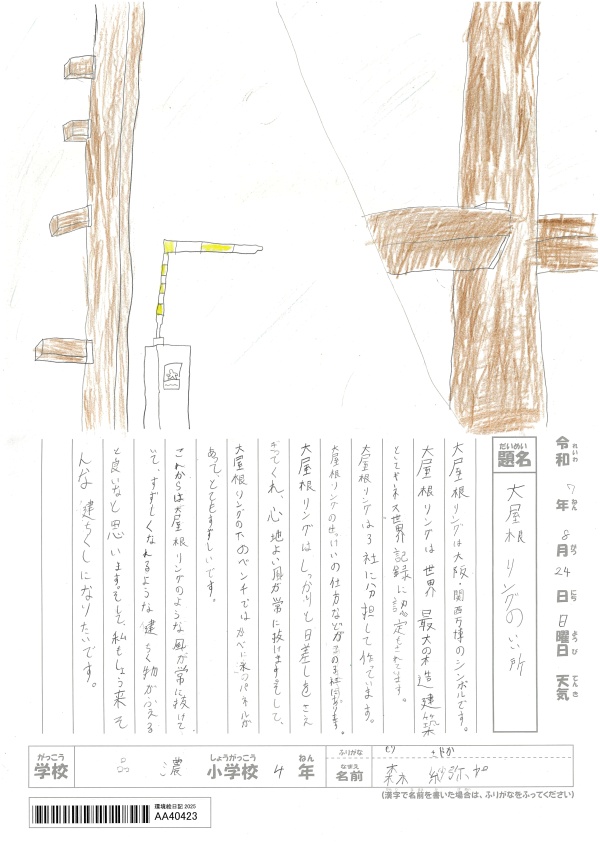 令和 7年 8月 24日 日曜日 天気
れいわ ねん がつ にち ようび てんき
だいめい
題名
大屋根リングのいい所
大屋根リングは大阪・関西万博のシンボルです。
大屋根リングは世界最大の木造建築
としてギネス世界記録に認定をされています。
大屋根リングは3社に分担して作っています。
大屋根リングのせっけいの仕方など
大屋根リングはしっかりと日差しをさえ
ぎってくれ、心地よい風が常に抜けます。そして、
大屋根リングの下のベンチではかべに氷のパネルが
あって、とてもすずしいです。
これからは大屋根リングのような風が常に抜けて
いて、すずしくなれるような建ちく物がふえる
と良いなと思います。そして、私もしょう来そ
んな建ちくしになりたいです。
がっこう
学校
品濃
しょうがっこう
小学校
4
ねん
年
ふりがな
もり
なまえ
名前
森
(漢字で名前を書いた場合は、ふりがなをふってください)
環境絵日記 2025
AA40423